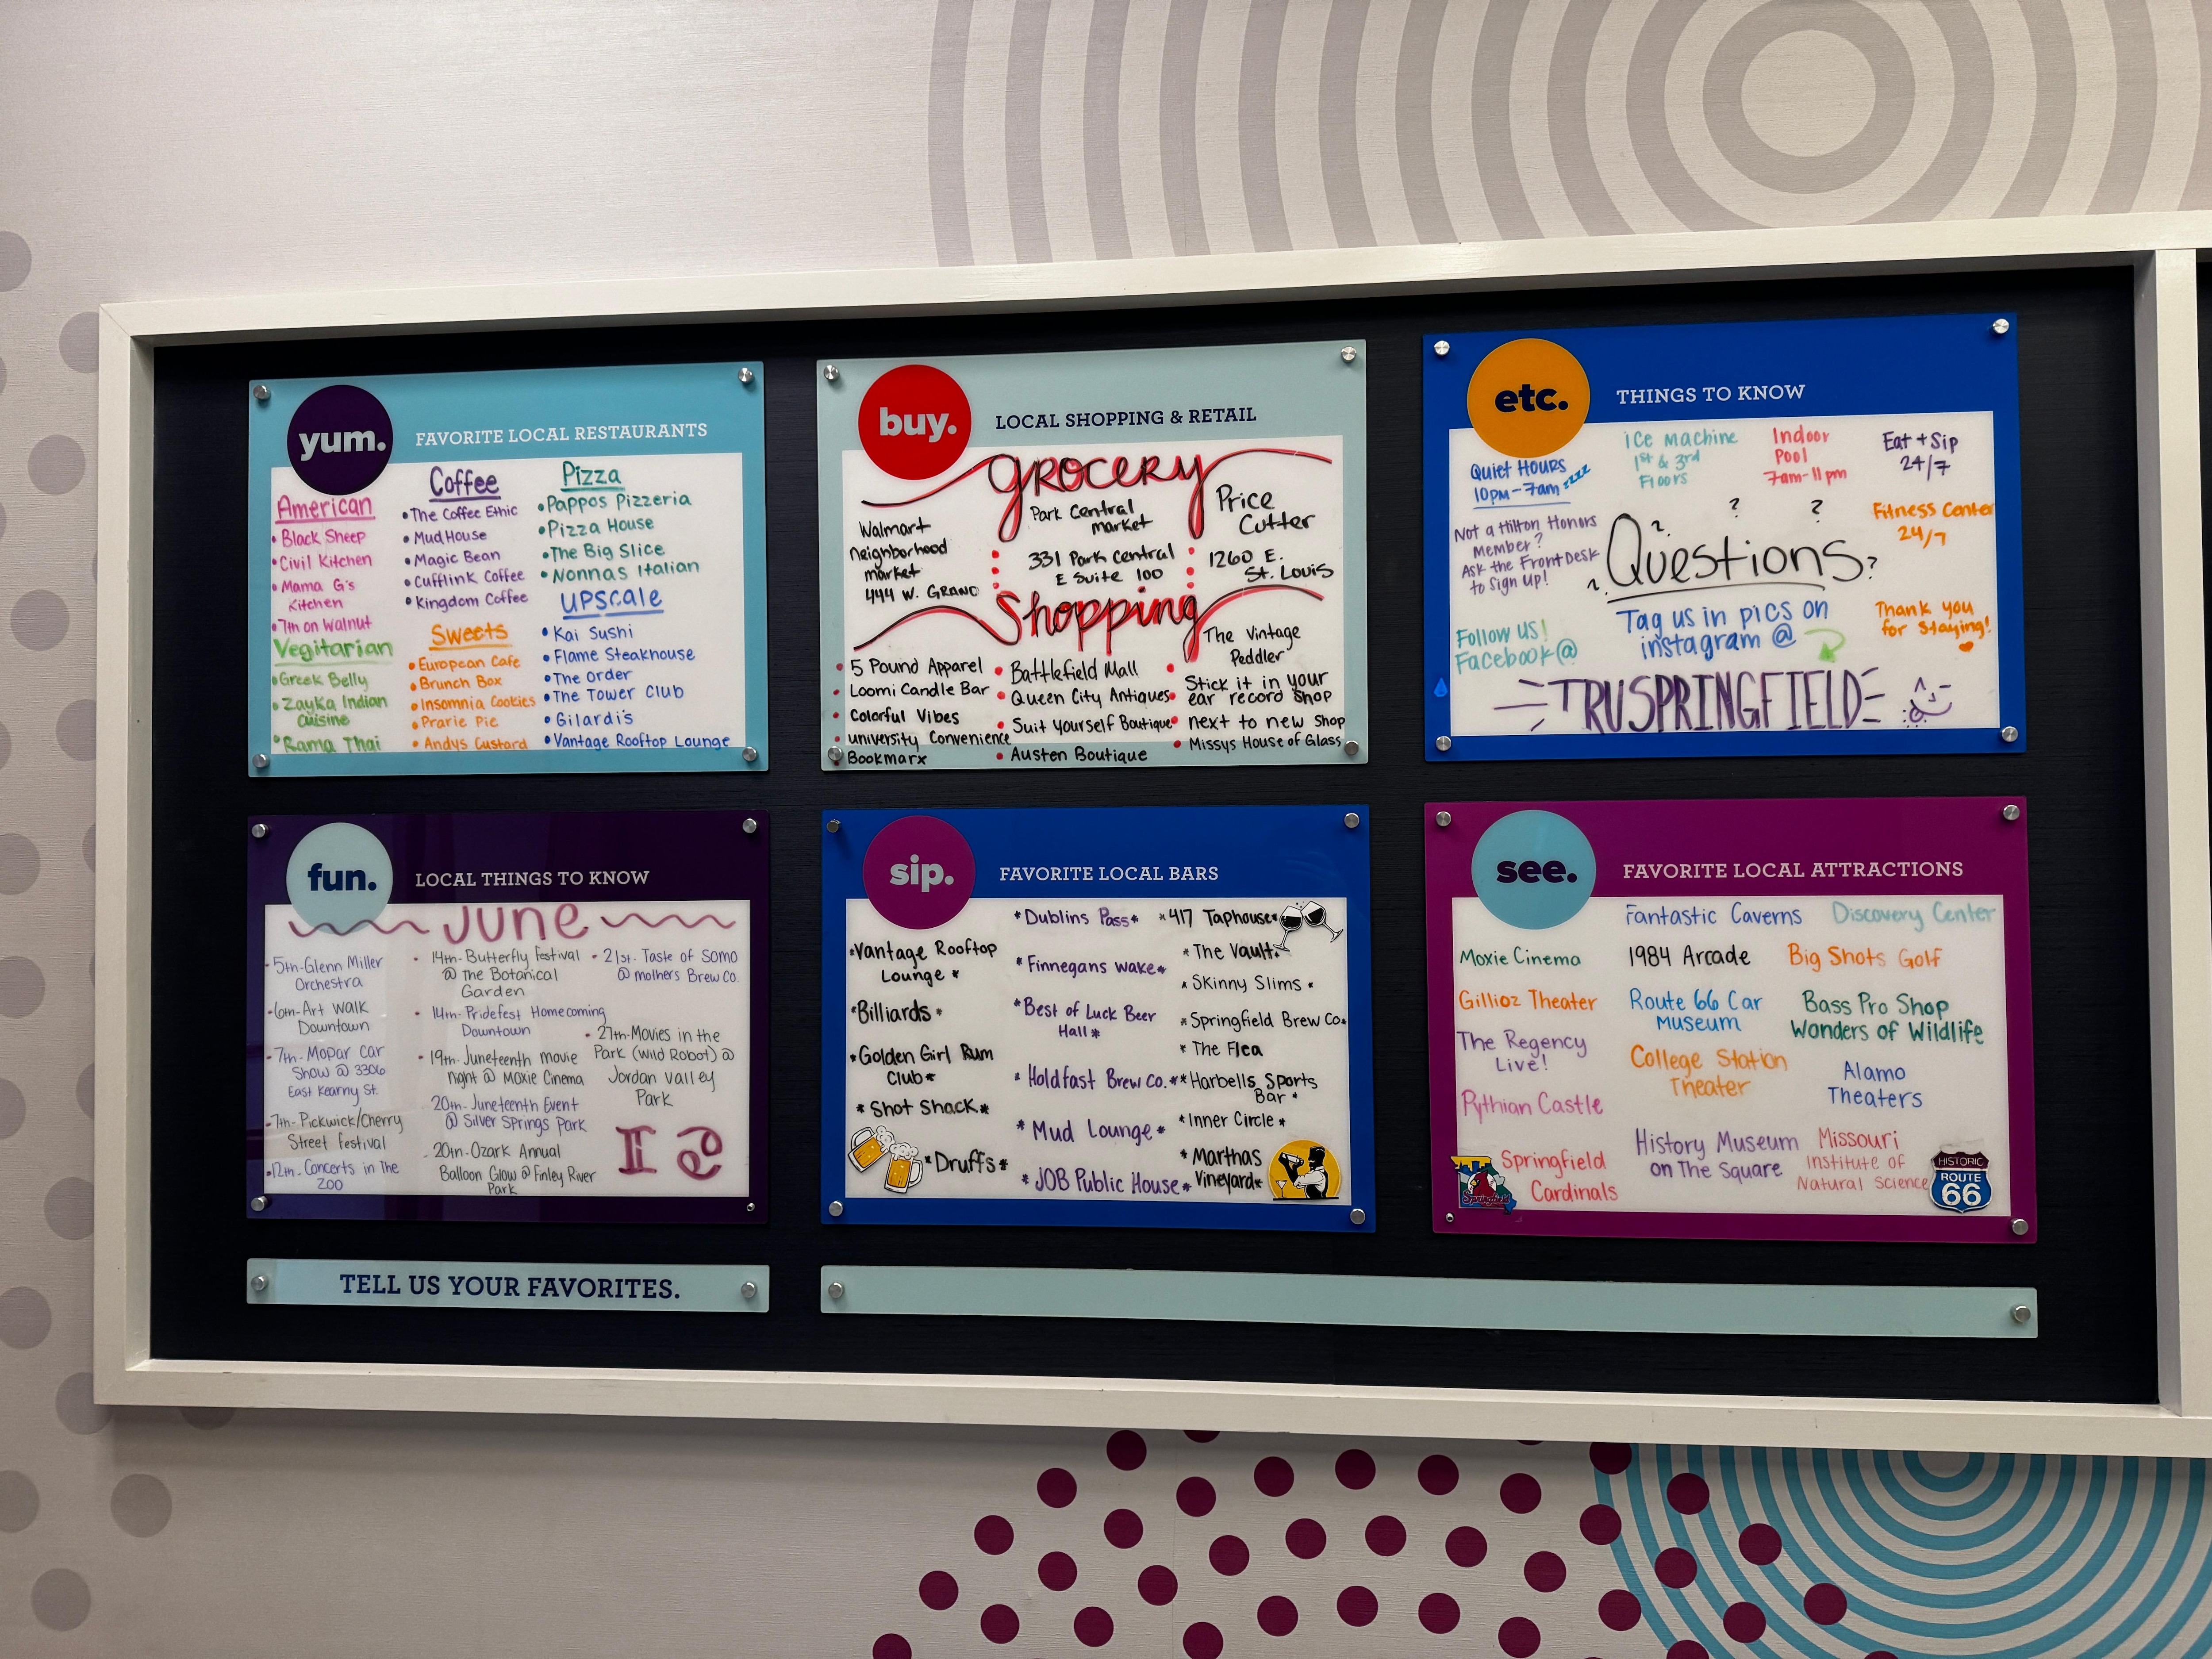 yum.
FAVORITE LOCAL RESTAURANTS
American
• Black Sheep
• Civil Kitchen
• Mama G's
Kitchen
• 7th on Walnut
Vegitarian
• Greek Belly
• Zayka Indian
Cuisine
• Rama Thai
Coffee
• The Coffee Ethic
• MudHouse
• Magic Bean
• Cufflink Coffee
• Kingdom Coffee
Sweets
• European Cafe
• Brunch Box
• Insomnia Cookies
• Prarie Pie
• Andys Custard
Pizza
• Pappos Pizzeria
• Pizza House
• The Big Slice
• Nonnas Italian
upscale
• Kai Sushi
• Flame Steakhouse
• The Order
• The Tower Club
• Gilardi's
• Vantage Rooftop Lounge
buy.
LOCAL SHOPPING & RETAIL
grocery
Walmart
Neighborhood
market
444 W. GRAND
Park Central
market
331 Park Central
E Suite 100
Price
Cutter
1260 E.
St. Louis
Shopping
• 5 Pound Apparel
• Loomi Candle Bar
• Colorful Vibes
• university Convenience
• Bookmarx
• Battlefield Mall
• Queen City Antiques
• Suit Yourself Boutique
• Austen Boutique
• The Vintage
Peddler
• Stick it in your
ear record Shop
• next to new Shop
• Missys House of Glass
etc.
THINGS TO KNOW
Quiet Hours
10pm-7am zzz
ice machine
1st & 3rd
Floors
Indoor
Pool
7am-11pm
Eat + Sip
24/7
Not a Hilton Honors
Member?
Ask the Front Desk
to sign up!
? ? ?
? Questions ?
Fitness Center
24/7
Follow us!
Facebook@
Tag us in pics on
instagram @
Thank you
for staying!
TRUSPRINGFIELD
fun.
LOCAL THINGS TO KNOW
June
- 5th-Glenn Miller
Orchestra
- 6th-Art Walk
Downtown
- 7th- Mopar Car
Show @ 3306
East Kearny St.
- 7th- Pickwick/Cherry
Street festival
- 12th- Concerts in the
Zoo
• 14th- Butterfly festival
@ the Botanical
Garden
• 14th- Pridefest Homecoming
Downtown
• 19th- Juneteenth movie
night @ Moxie Cinema
20th- Juneteenth Event
@ Silver Springs Park
- 20th- Ozark Annual
Balloon Glow @ Finley River
Park
• 21st- Taste of SOMO
@ mothers Brew Co.
• 27th-Movies in the
Park (Wild Robot) @
Jordan valley
Park
sip.
FAVORITE LOCAL BARS
*Vantage Rooftop
Lounge *
*Billiards *
*Golden Girl Rum
Club*
* Shot Shack*
*Druffs*
*Dublins Pass*
*Finnegans Wake*
*Best of Luck Beer
Hall*
* Holdfast Brew Co.*
* Mud Lounge *
* JOB Public House*
*417 Taphouse*
* The Vault*
* Skinny Slims *
* Springfield Brew Co*
* The Flea
*Harbells Sports
Bar *
*Inner Circle *
* Marthas
Vineyard*
see.
FAVORITE LOCAL ATTRACTIONS
Moxie Cinema
Gillioz Theater
The Regency
Live!
Pythian Castle
Springfield
Cardinals
Springfield
Fantastic Caverns
1984 Arcade
Route 66 Car
Museum
College Station
Theater
History Museum
on The Square
Discovery Center
Big Shots Golf
Bass Pro Shop
Wonders of Wildlife
Alamo
Theaters
Missouri
Institute of
Natural Science
HISTORIC
ROUTE
66
TELL US YOUR FAVORITES.